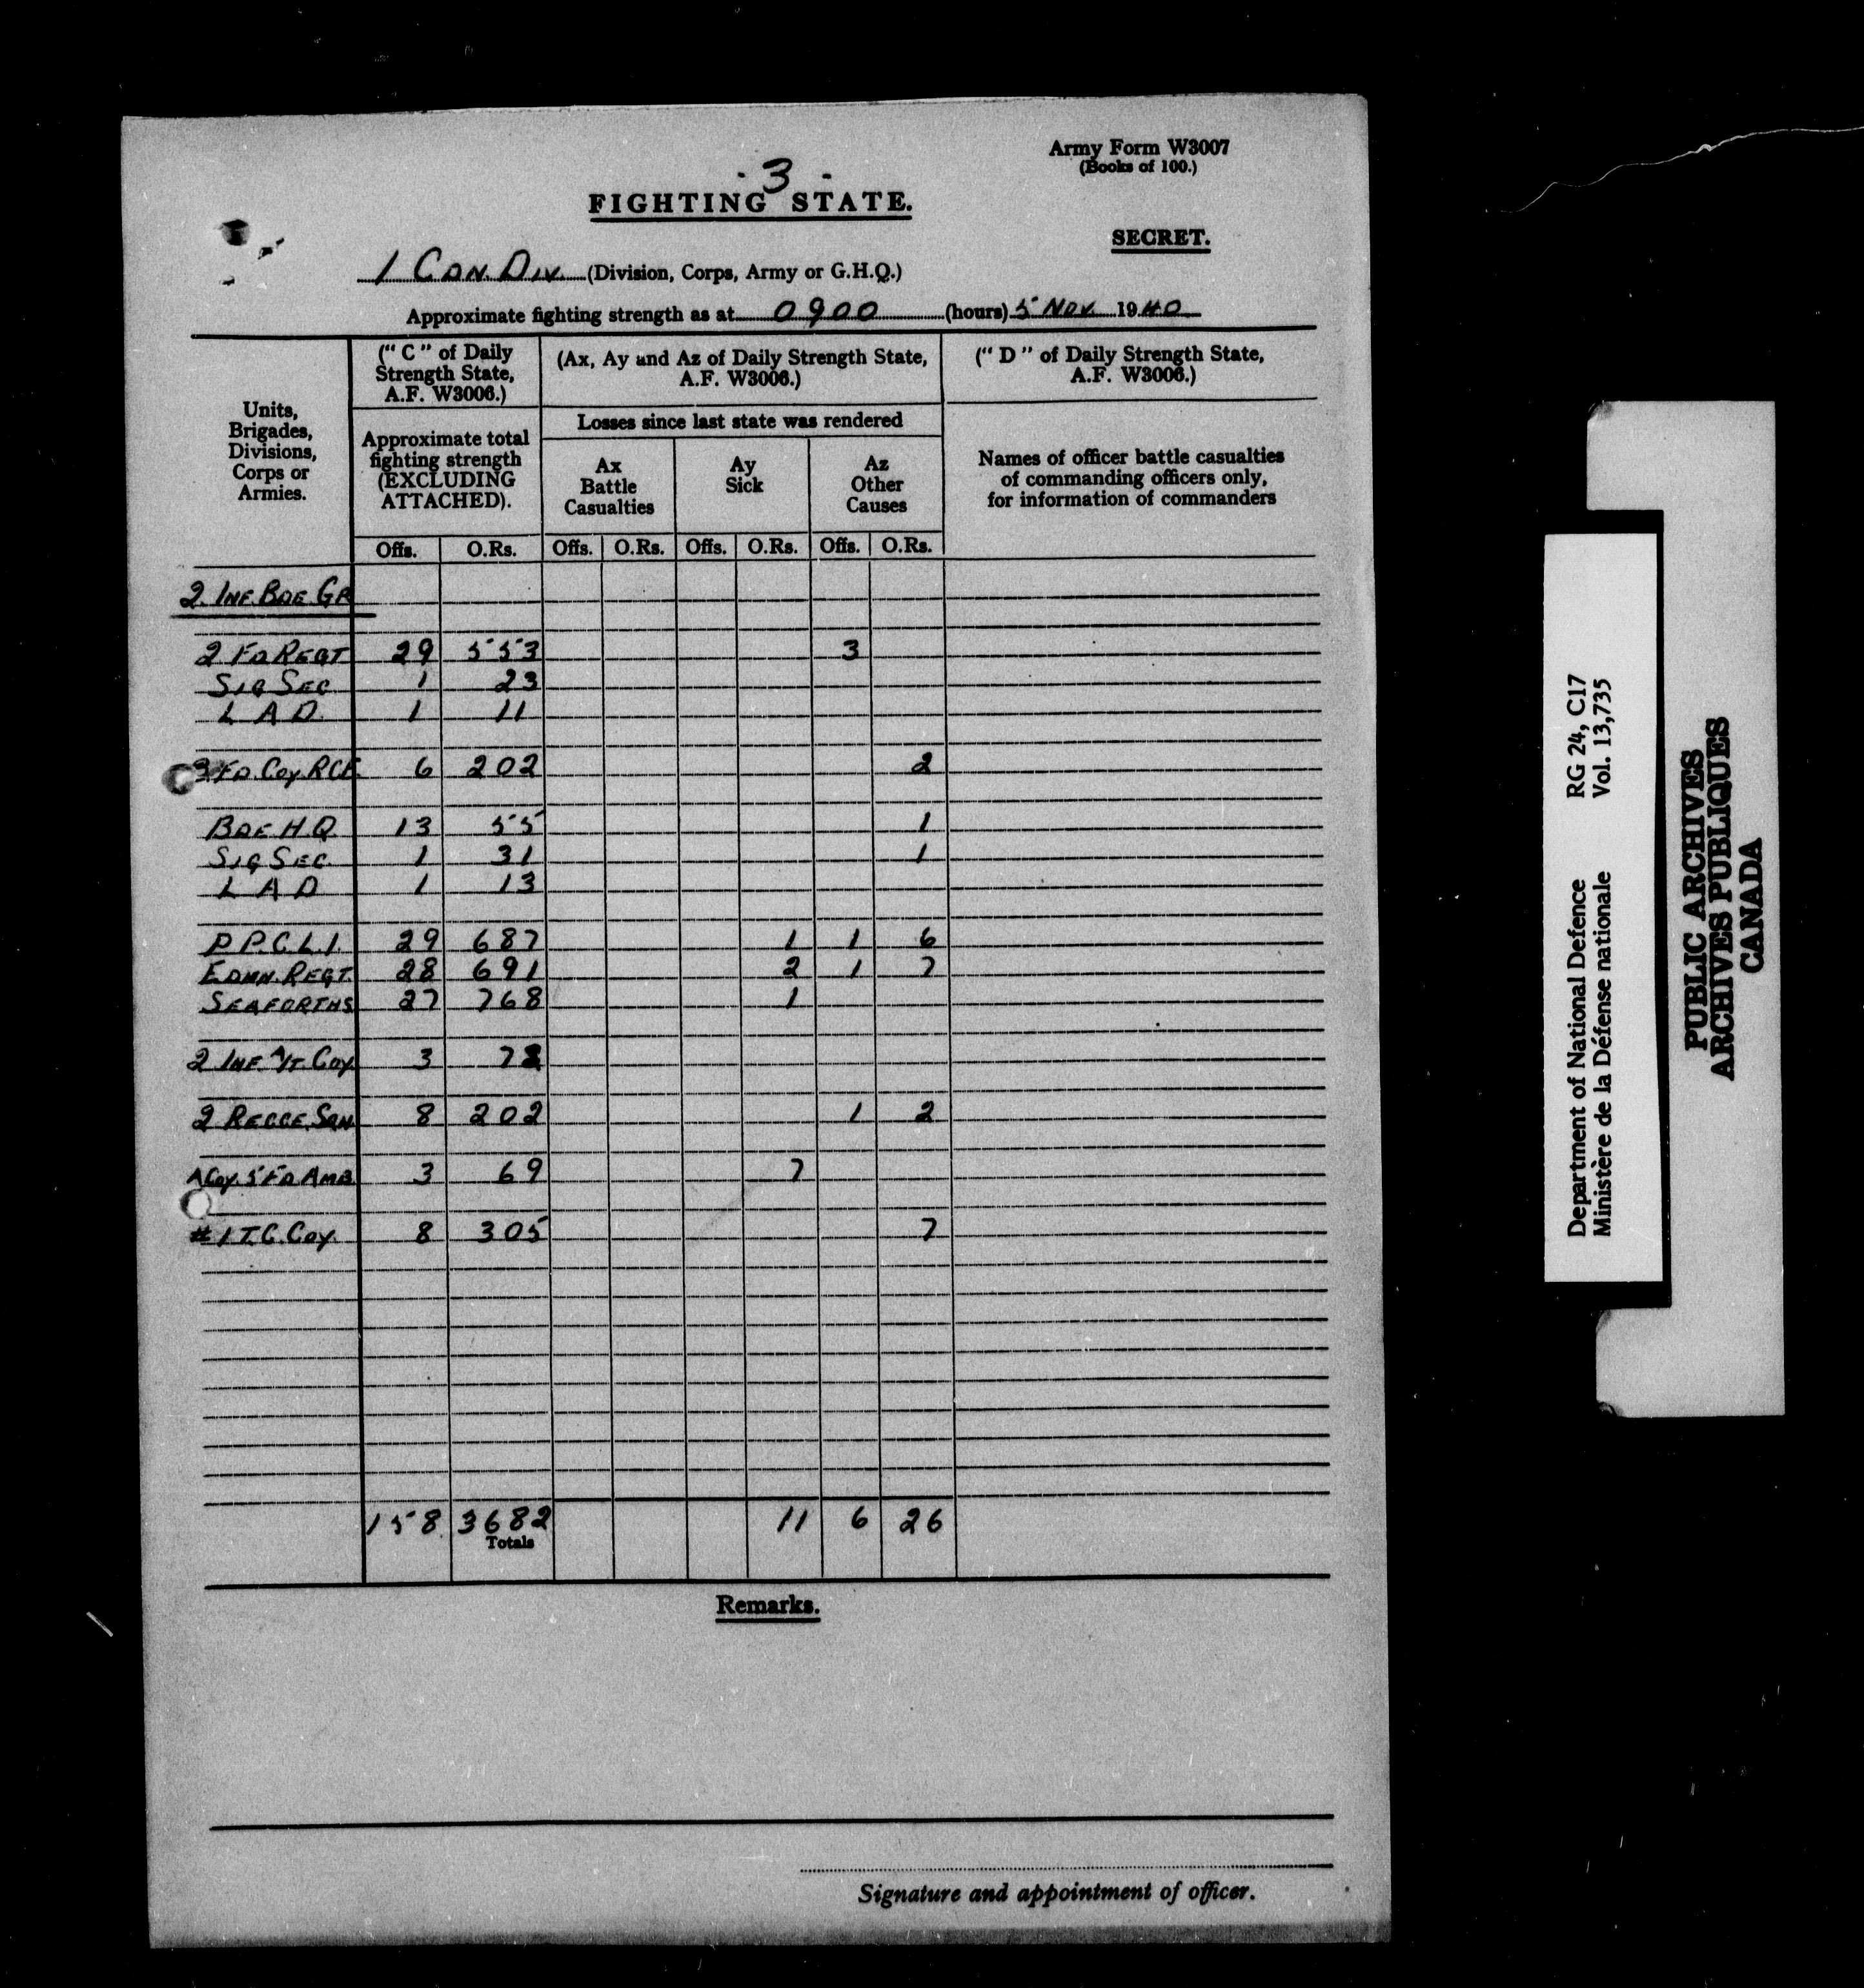 Army Form W3007
(Books of 100.)
- 3 -
FIGHTING STATE.
SECRET.
1 CDN. DIV. (Division, Corps, Army or G.H.Q.)
Approximate fighting strength as at 0900 (hours) 5 NOV. 1940
Units, Brigades, Divisions, Corps or Armies.
("C" of Daily Strength State, A.F. W3006.)
(Ax, Ay and Az of Daily Strength State, A.F. W3006.)
("D" of Daily Strength State, A.F. W3006.)
Approximate total fighting strength (EXCLUDING ATTACHED).
Losses since last state was rendered
Ax Battle Casualties
Ay Sick
Az Other Causes
Names of officer battle casualties of commanding officers only, for information of commanders
Offs. O.Rs. Offs. O.Rs. Offs. O.Rs. Offs. O.Rs.
2. INF. BDE GP
2 FD REGT 29 553 3
SIG SEC 1 23
L A D 1 11
3 FD. COY. RCE. 6 202 2
BDE H Q 13 55 1
SIG SEC 1 31 1
L A D 1 13
P.P.C.L.I. 29 687 1 1 6
EDMN. REGT. 28 691 2 1 7
SEAFORTHS 27 768 1
2 INF. A/T. COY. 3 72
2 RECCE. SQN. 8 202 1 2
A COY. 5 FD AMB. 3 69 7
# 1 T.C. COY. 8 305 7
158 3682 11 6 26
Totals
Remarks.
Signature and appointment of officer.
Department of National Defence RG 24, C17
Ministère de la Défense nationale Vol. 13,735
PUBLIC ARCHIVES
ARCHIVES PUBLIQUES
CANADA